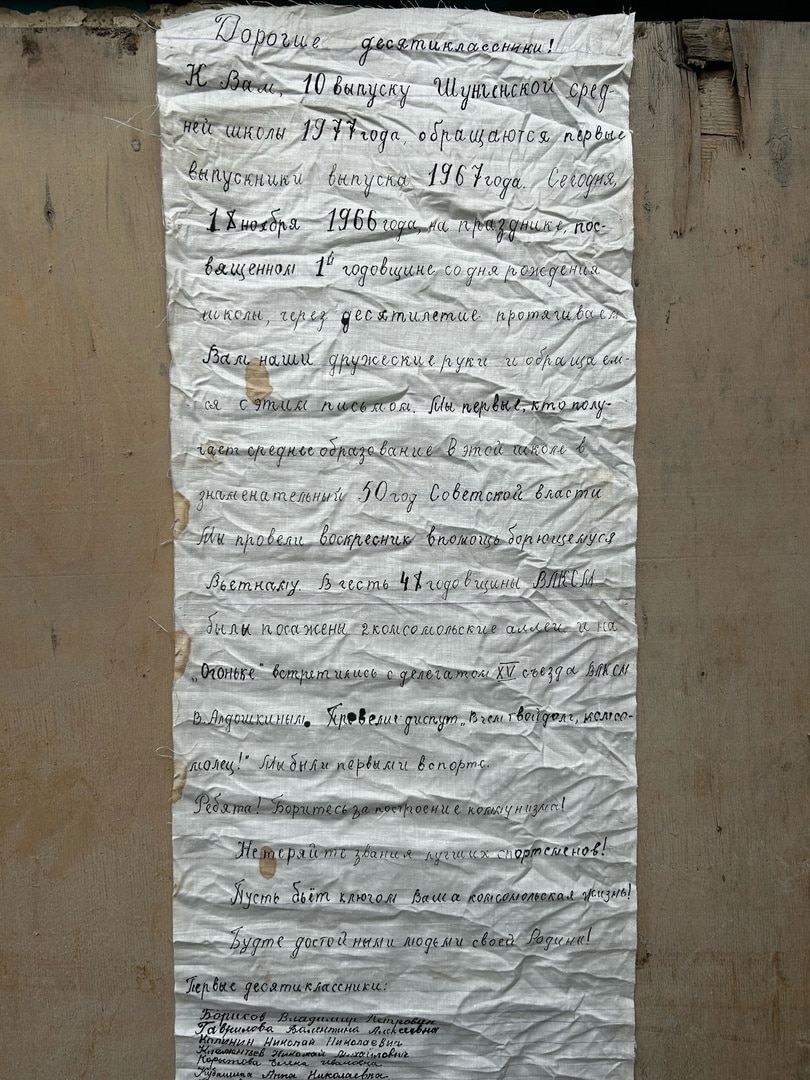 Дорогие десятиклассники!
К Вам, 10 выпуску Шунгенской сред-
ней школы 1977 года, обращаются первые
выпускники выпуска 1967 года. Сегодня,
18 ноября 1966 года, на празднике, пос-
вященном 1й годовщине со дня рождения
школы, через десятилетие протягиваем
Вам наши дружеские руки и обращаем-
ся с этим письмом. Мы первые, кто полу-
чает среднее образование в этой школе в
знаменательный 50 год Советской власти
Мы провели воскресник в помощь борющемуся
Вьетнаму. В честь 48 годовщины ВЛКСМ
были посажены 2 комсомольские аллеи и на
„Огоньке" встретились с делегатом XV съезда ВЛКСМ
В. Алдошкиным. Провели диспут „В чем твой долг, комсо-
молец!" Мы были первыми в спорте.
Ребята! Боритесь за построение коммунизма!
Не теряйте звания лучших спортсменов!
Пусть бьёт ключом Ваша комсомольская жизнь!
Будте достойными людьми своей Родины!
Первые десятиклассники:
Борисов Владимир Петрович
Гаврилова Валентина Алексеевна
Калинин Николай Николаевич
Клементьев Николай Михайлович
Корытова Елена Ивановна
Анна Николаевна